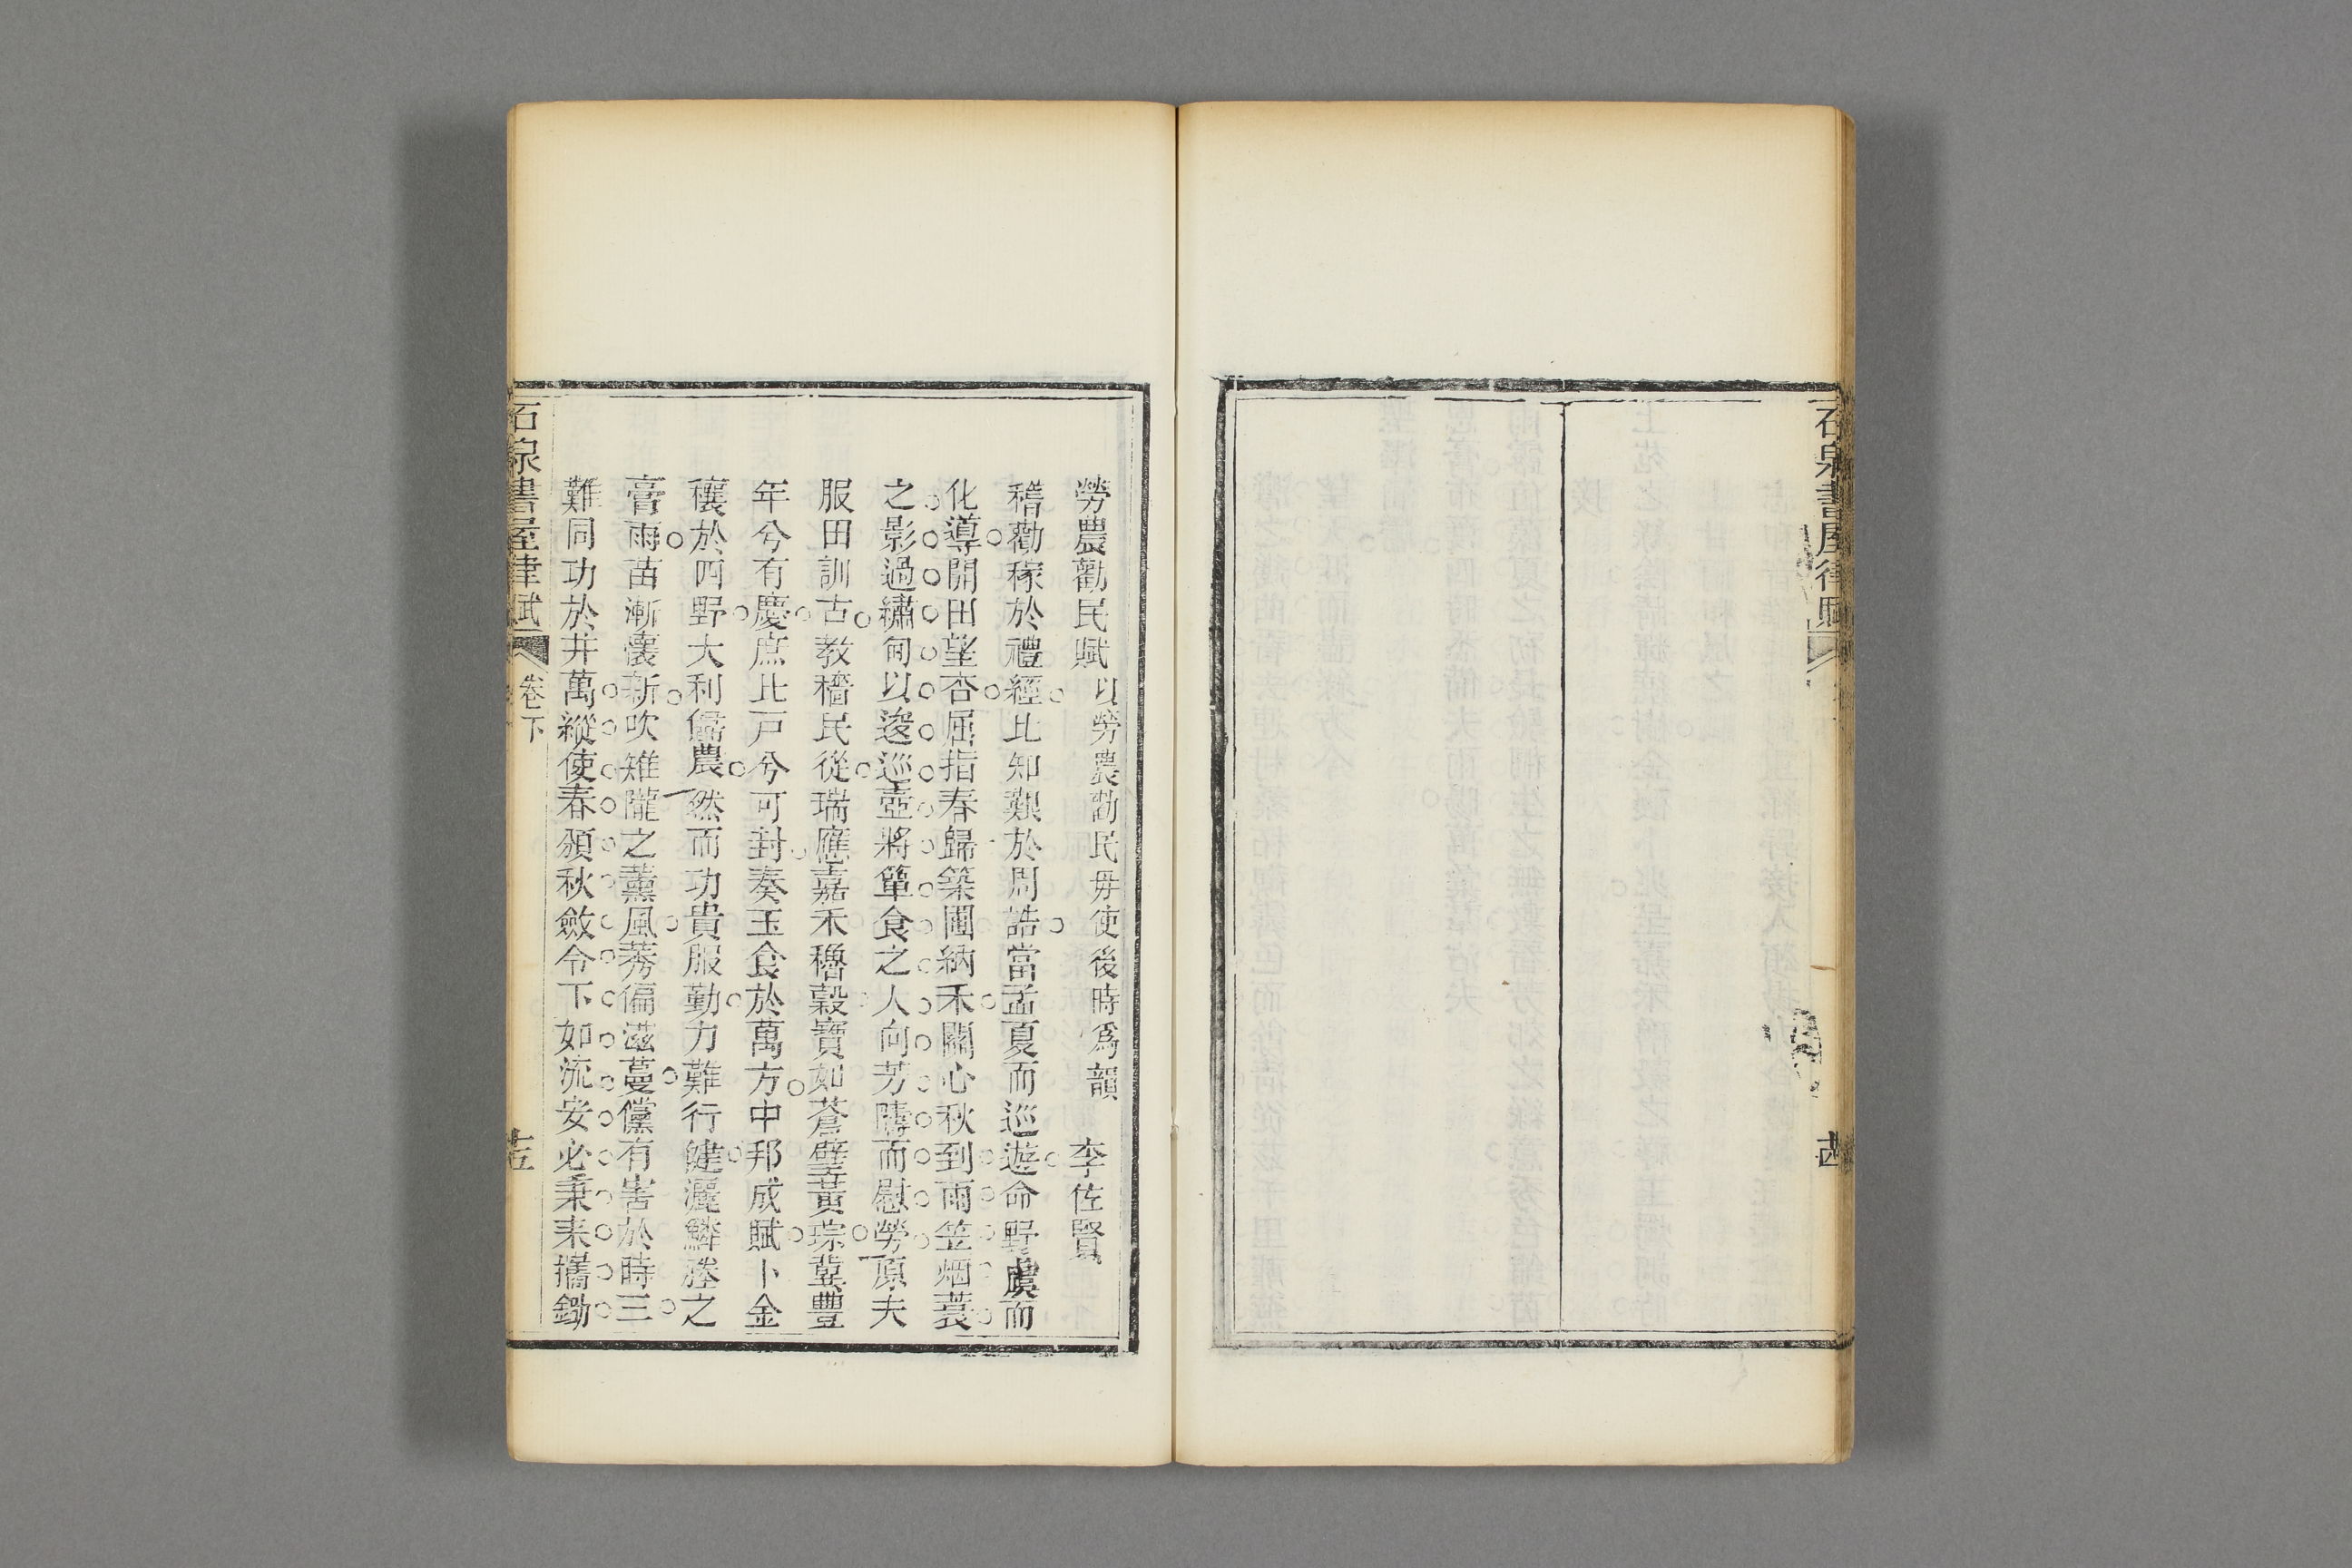 石泉書屋律賦
勞農勸民賦 以勞農勸民毋使後時爲韻 李佐賢
稽勸稼於禮經比知艱於周誥當孟夏而巡遊命野虞而
化導開田望杏屈指春歸築圃納禾關心秋到雨笠烟蓑
之影過繡甸以逡巡壺漿簞食之人向芳疇而慰勞原夫
服田訓古教穡民從瑞應嘉禾穭穀寶如蒼璧黃琮冀豐
年兮有慶庶比戸兮可封奏玉食於萬方中邦成賦卜金
穰於四野大利歸農然而功貴服勤力難行健灑鱗塍之
膏雨苗漸懷新吹雉隴之薰風莠偏滋蔓儻有害於時三
難同功於井萬縱使春頒秋斂令下如流安必秉耒攜鋤
石泉書屋律賦 卷下 十五